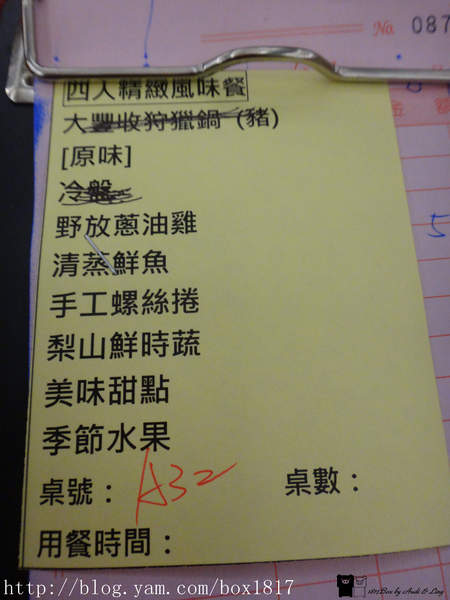 No. 087
四人精緻風味餐
大豐收狩獵鍋 (豬)
[原味]
冷盤
野放蔥油雞
清蒸鮮魚
手工螺絲捲
梨山鮮時蔬
美味甜點
季節水果
桌號： A32 桌數：
用餐時間：
5
金額
1817Box by Andi & Ling
http://blog.yam.com/box1817